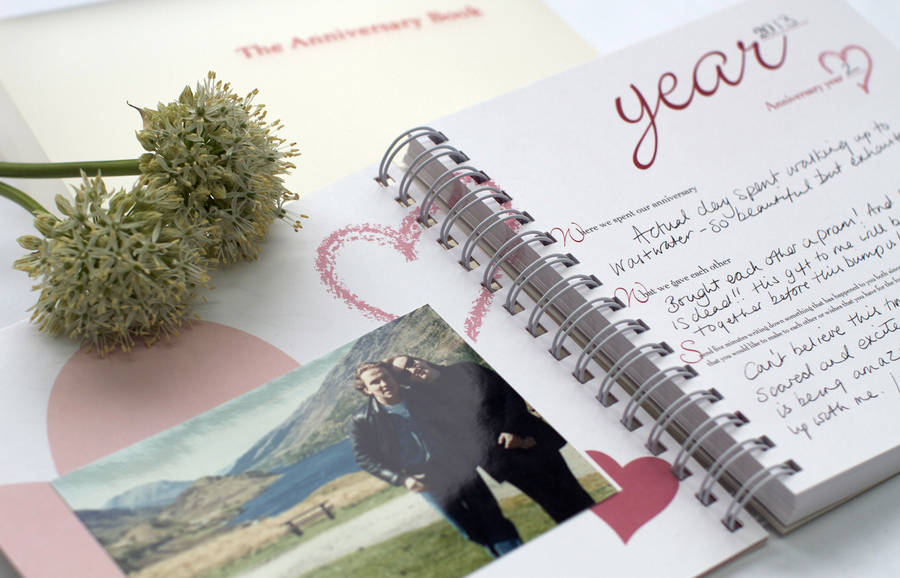 The Anniversary Book
year 2013
Anniversary year 2
Where we spent our anniversary
Actual day spent walking up to
Wastwater - so beautiful but
What we gave each other
Bought each other a pram! And
is dead!! this gift to me will
together before this bump is
Spend five minutes writing down something that has happened to you both
that you would like to make to each other or wishes that you have for the
Can't believe this
Scared and
is being
up with me.